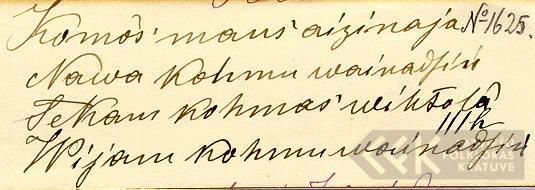 Komôs mans aizinaja № 1625.
Nawa kohmu wainadsiń
Tekam kohmas
Wijam kohmu wainadsiń
FOLKLORAS
KRATUVE